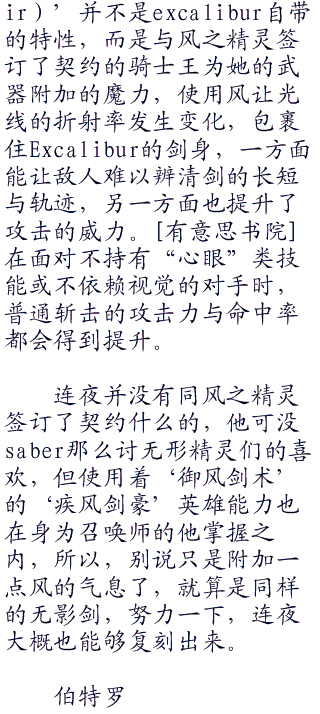 ir）’并不是excalibur自带
的特性，而是与风之精灵签
订了契约的骑士王为她的武
器附加的魔力，使用风让光
线的折射率发生变化，包裹
住Excalibur的剑身，一方面
能让敌人难以辨清剑的长短
与轨迹，另一方面也提升了
攻击的威力。[有意思书院]
在面对不持有“心眼”类技
能或不依赖视觉的对手时，
普通斩击的攻击力与命中率
都会得到提升。
连夜并没有同风之精灵
签订了契约什么的，他可没
saber那么讨无形精灵们的喜
欢，但使用着‘御风剑术’
的‘疾风剑豪’英雄能力也
在身为召唤师的他掌握之
内，所以，别说只是附加一
点风的气息了，就算是同样
的无影剑，努力一下，连夜
大概也能够复刻出来。
伯特罗